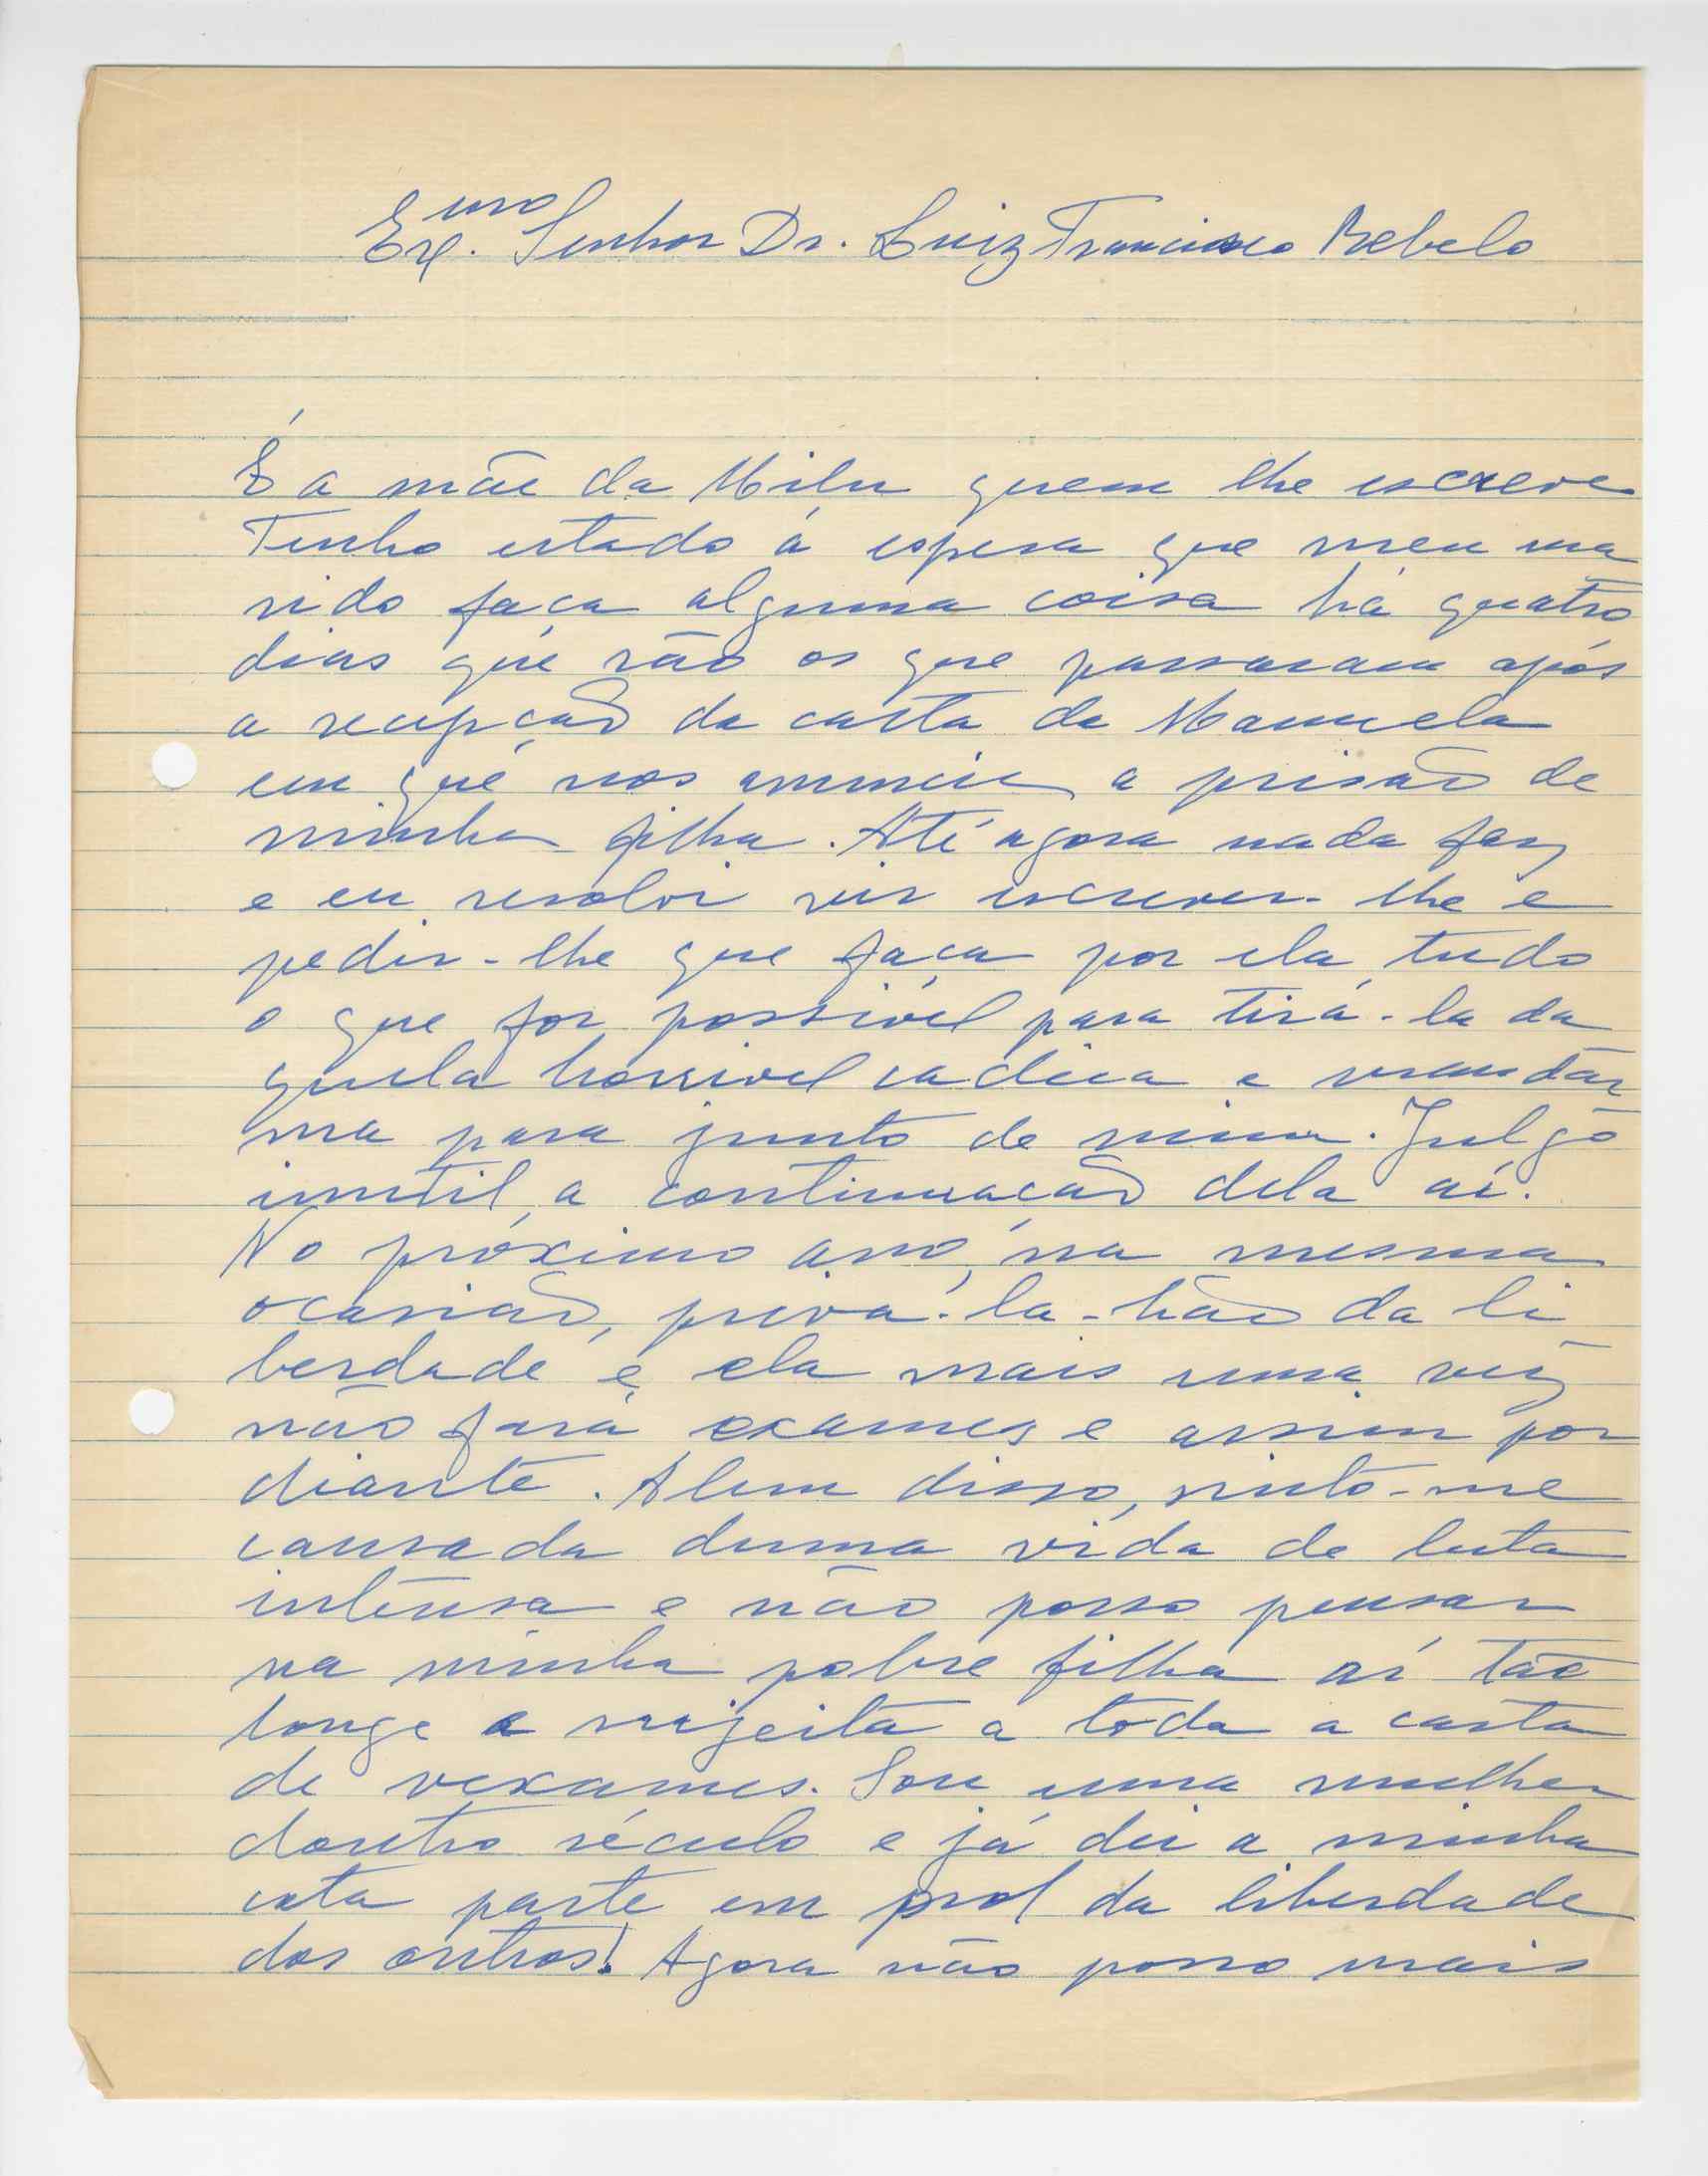 Exmo. Senhor Dr. Luiz Francisco Rebelo
É a mãe da Milu quem lhe escreve
Tenho estado á espera que meu ma
rido faça alguma coisa há quatro
dias que são os que passaram após
a recepção da carta da Manuela
em que nos anuncia a prisão de
minha filha. Até agora nada fez
e eu resolvi vir escrever-lhe e
pedir-lhe que faça por ela tudo
o que for possível para tirá-la da
quela horrivel cadeia e mandar
ma para junto de mim. Julgo
inutil a continuação dela aí.
No próximo ano, na mesma
ocasião, privá-la-hão da li
berdade e ela mais uma vez
não fará exames e assim por
diante. Alem disso, sinto-me
cansada duma vida de luta
intensa e não posso pensar
na minha pobre filha aí tão
longe e sujeita a toda a casta
de vexames. Sou uma mulher
doutro século e já dei a minha
cota parte em prol da liberdade
dos outros! Agora não posso mais